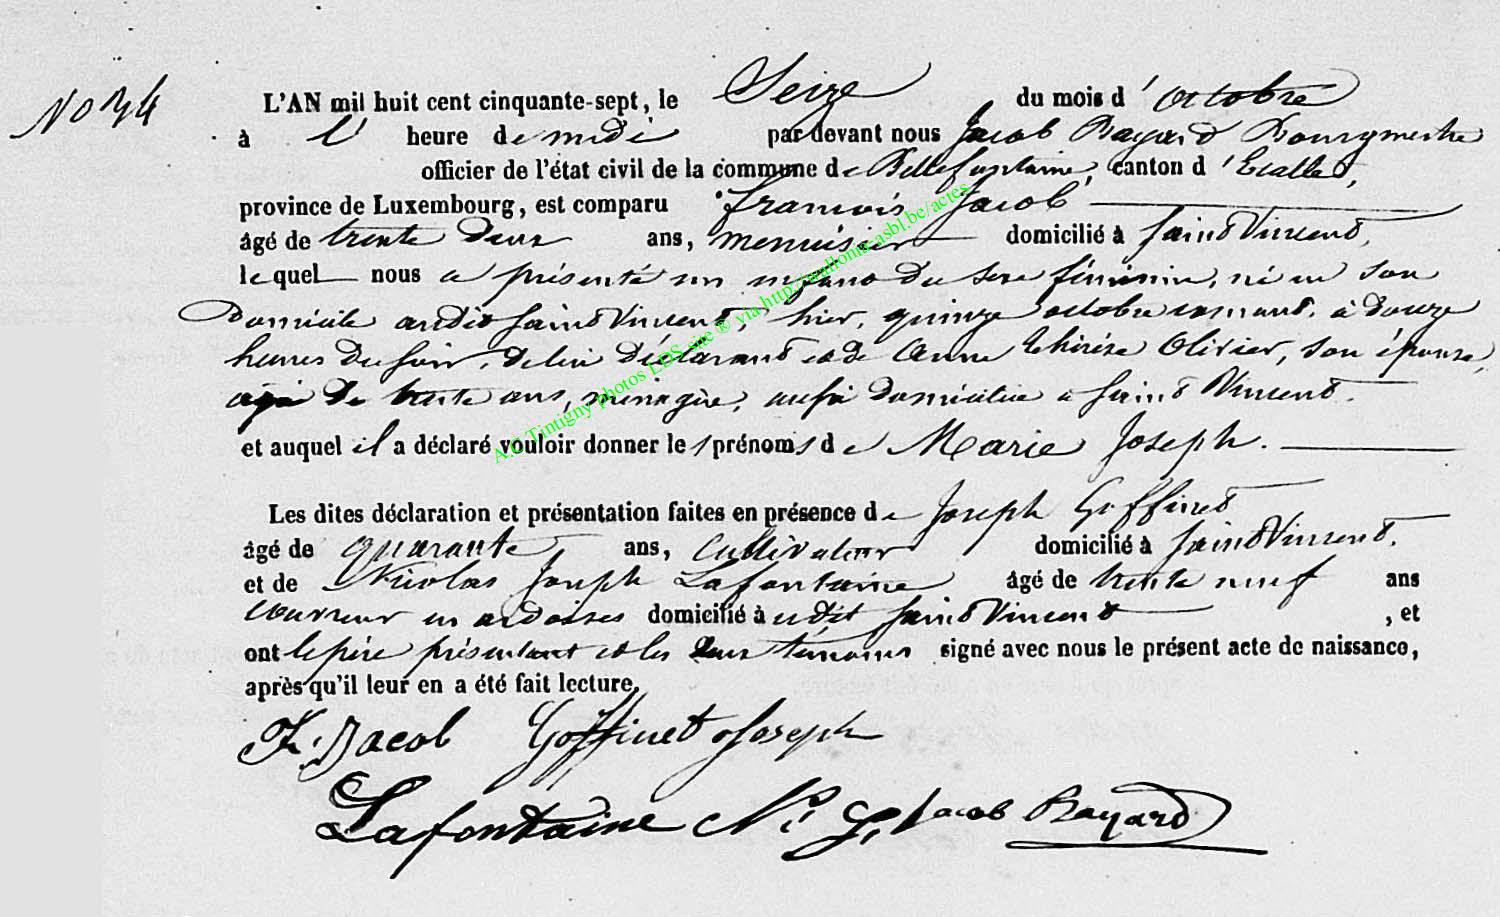 No 34
L'AN mil huit cent cinquante-sept, le Seize du mois d'octobre
à l' heure de midi par devant nous Jacob Bayard Bourgmestre
officier de l'état civil de la commune de Bellefontaine, canton d'Etalle,
province de Luxembourg, est comparu François Jacob
âgé de trente deux ans, menuisier domicilié à Saint Vincent,
lequel nous a présenté un enfant du sexe féminin, né en son
domicile audit Saint Vincent, hier, quinze octobre courant, à douze
heures du soir, de lui déclarant et de Anne Thérèse Olivier, son épouse,
agée de trente ans, ménagère, aussi domiciliée a Saint Vincent.
et auquel il a déclaré vouloir donner les prénoms de Marie Joseph.
Les dites déclaration et présentation faites en présence de Joseph Goffinet
âgé de quarante ans, cultivateur domicilié à Saint Vincent,
et de Nicolas Joseph Lafontaine âgé de trente neuf ans
couvreur en ardoises domicilié à udit Saint Vincent, et
ont le père présentant et les deux témoins signé avec nous le présent acte de naissance,
après qu'il leur en a été fait lecture.
F. Jacob Goffinet Joseph
Lafontaine N. J. Jacob Bayard
A.C Tintigny photos LDS site ® via http://wallonia-asbl.be/actes